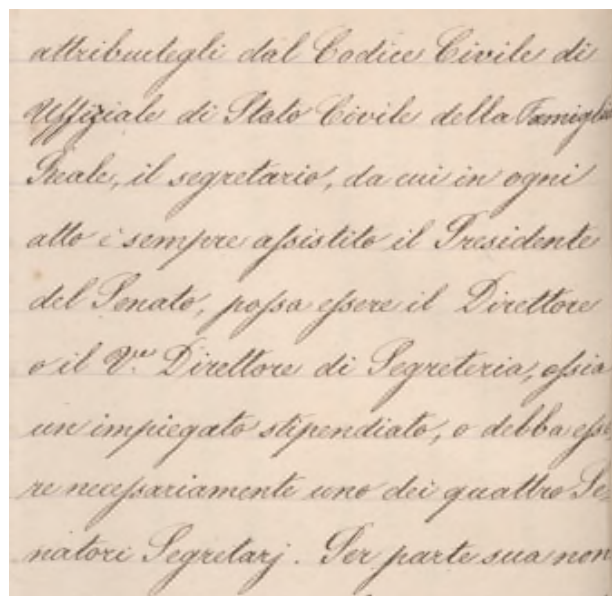 attribuitegli dal Codice Civile di
Uffiziale di Stato Civile della Famiglia
Reale, il segretario, da cui in ogni
atto è sempre assistito il Presidente
del Senato, possa essere il Direttore
o il V.e Direttore di Segreteria, ossia
un impiegato stipendiato, o debba esse
re necessariamente uno dei quattro Se,
natori Segretarj. Per parte sua non